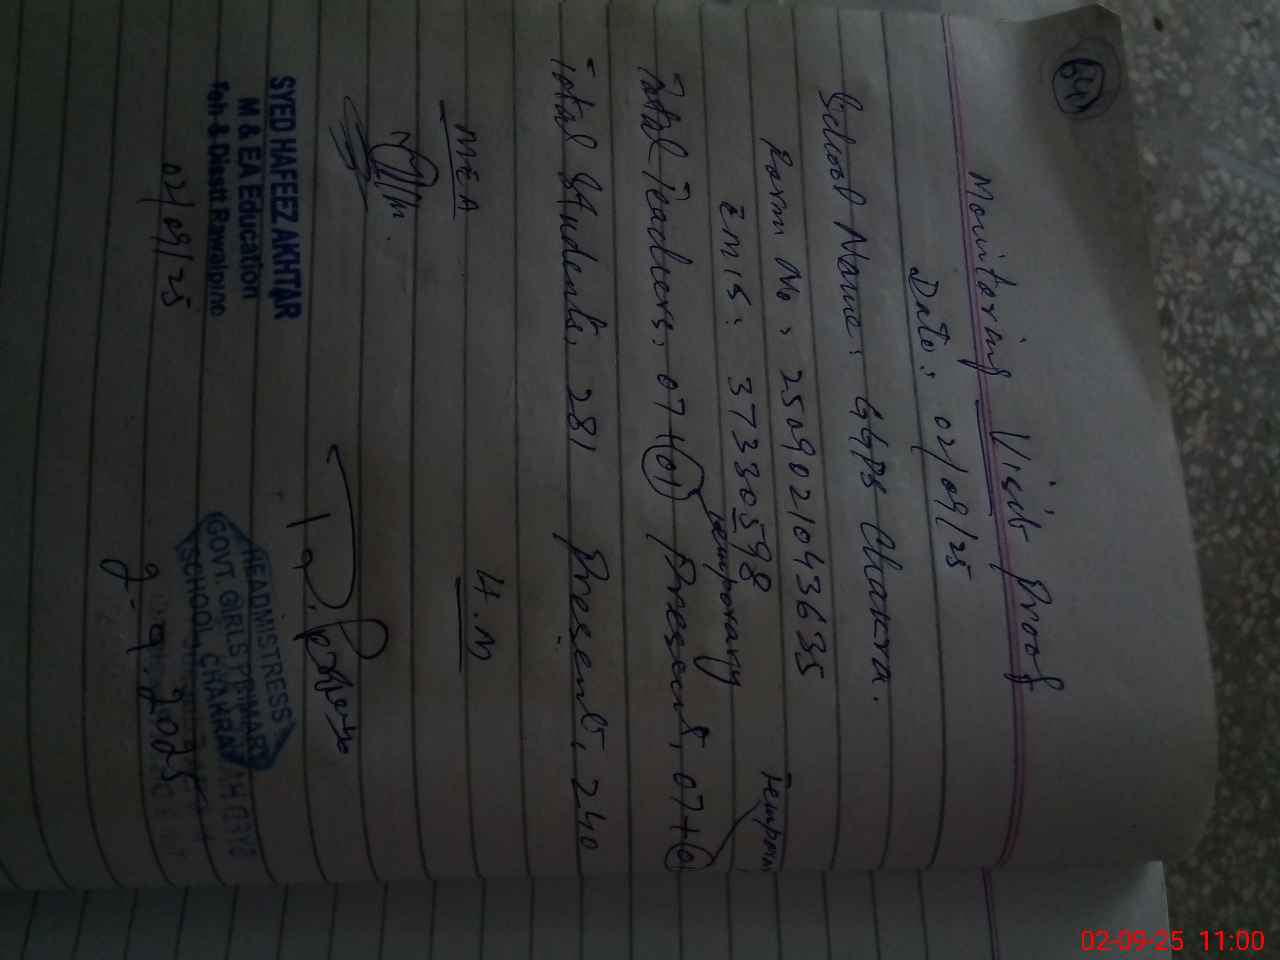 64
Monitoring Visit Proof
Date: 02/09/25
School Name: GGPS Chakra.
Form No: 250902104 36635
EMIS: 37330598
temporary Tempor
Total Teachers: 07+01 Present, 07+0
Total Students, 281 Present, 240
MEA H.M
SYED HAFEEZ AKHTAR
M & EA Education
Teh & Disstt Rawalpind
02/09/25
HEADMISTRESS
GOVT. GIRLS PRIMARY
SCHOOL, CHAKRA
2-9-2025
02-09-25 11:00